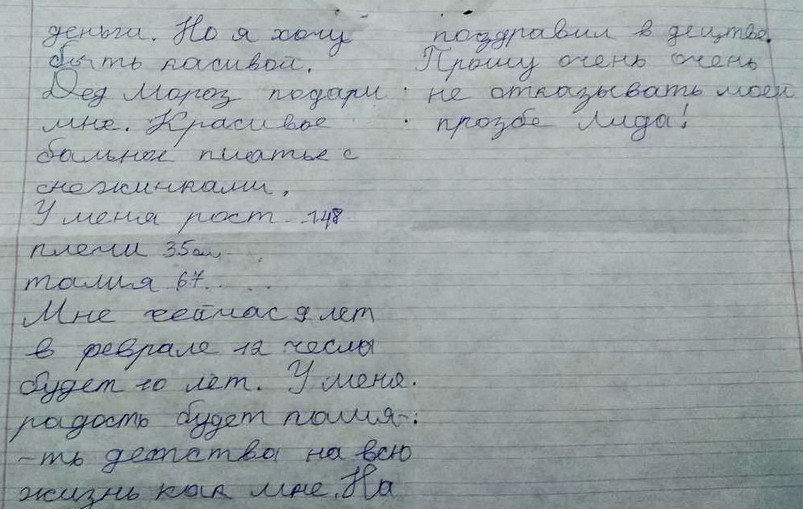 деньги. Но я хочу
быть касивой.
Дед Мороз подари
мне. Красивое
бальное платье с
снежинками.
У меня рост 148
плечи 35см
талия 67
Мне сейчас 9 лет
в феврале 12 чеслы
будет 10 лет. У меня
радость будет памия-
-ть детства на всю
жизнь как мне. На
поздравил в децтве.
Прошу очень очень
не отказывать моей
прозбе Лида!